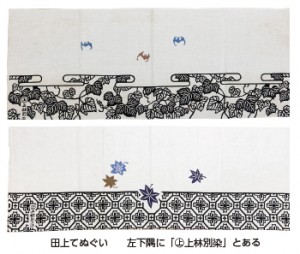 田上てぬぐい　左下隅に「㊤上林別染」とある